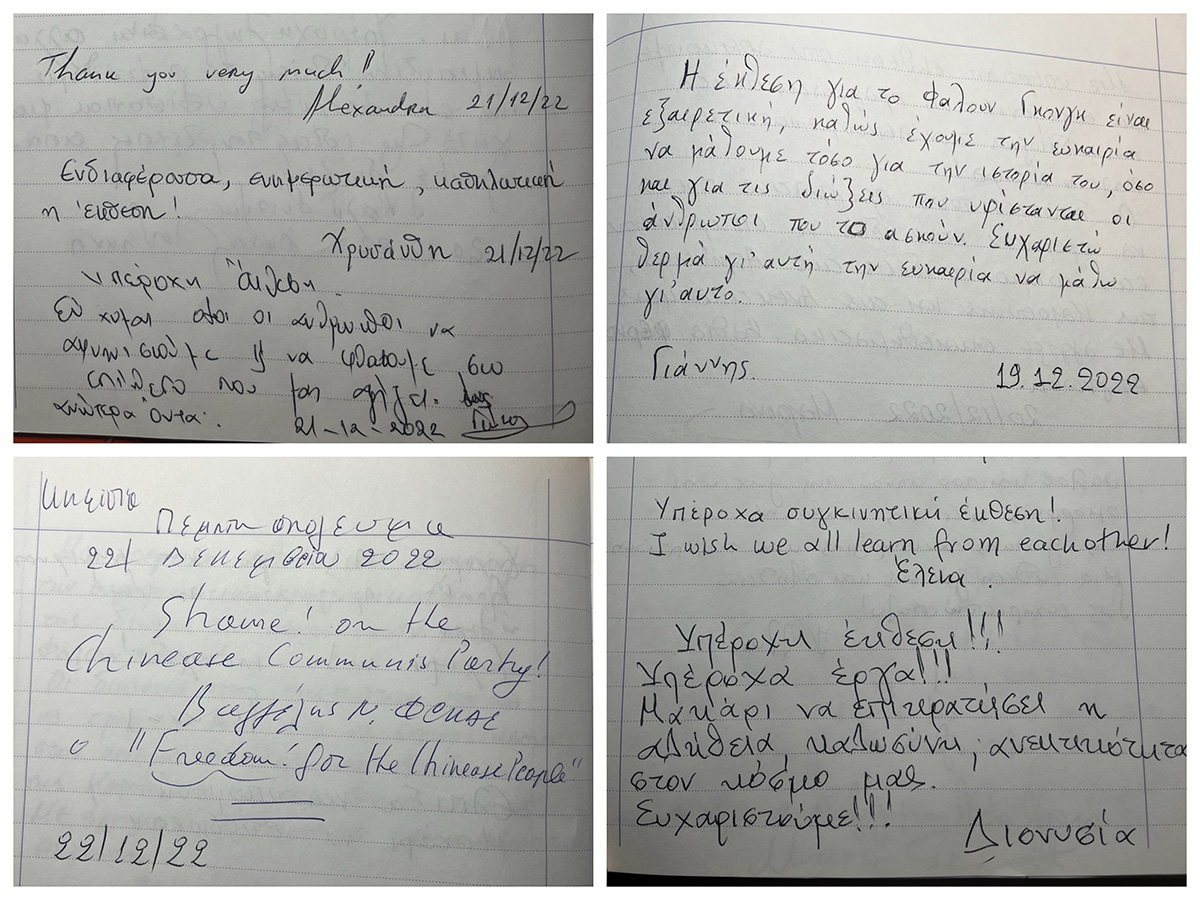 Thank you very much!
Alexandra 21/12/22
Ενδιαφέρουσα, ενημερωτική, καθηλωτική
η έκθεση!
Χρυσάνθη 21/12/22
Υπέροχη
Εύχομαι όλοι οι άνθρωποι να
να φθάσουμε στο
επίπεδο που μας αξίζει.
ανώτερα όντα.
21-12-2022
Η έκθεση για το Φαλουν Γκονγκ είναι
εξαιρετική, καθώς έχουμε την ευκαιρία
να μάθουμε τόσο για την ιστορία του, όσο
και για τις διώξεις που υφίστανται οι
άνθρωποι που το ασκούν. Ευχαριστώ
θερμά γι'αυτή την ευκαιρία να μάθω
γι'αυτό.
Γιάννης. 19.12.2022
Κηφισια
Πέμπτη
22/ Δεκεμβρίου 2022
Shame! on the
Chinease Communis Party!
Βαγγέλης Ν.
"Freedom! for the Chinease People"
22/12/22
Υπέροχα συγκινητική έκθεση!
I wish we all learn from eachother!
Έλενα.
Υπέροχη έκθεση!!!
Υπέροχα έργα!!!
Μακάρι να επικρατήσει η
αλήθεια, καλωσύνη, ανεκτικότητα
στον κόσμο μας.
Ευχαριστούμε!!!
Διονυσία